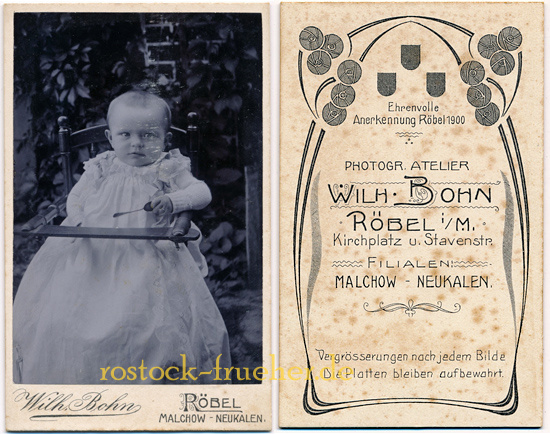 Wilh. Bohn
RÖBEL
MALCHOW - NEUKALEN.
Ehrenvolle
Anerkennung Röbel 1900
PHOTOGR. ATELIER
WILH. BOHN
RÖBEL i/M.
Kirchplatz u. Stavenstr.
FILIALEN:
MALCHOW - NEUKALEN.
Vergrösserungen nach jedem Bilde
Die Platten bleiben aufbewahrt.
rostock-frueher.de